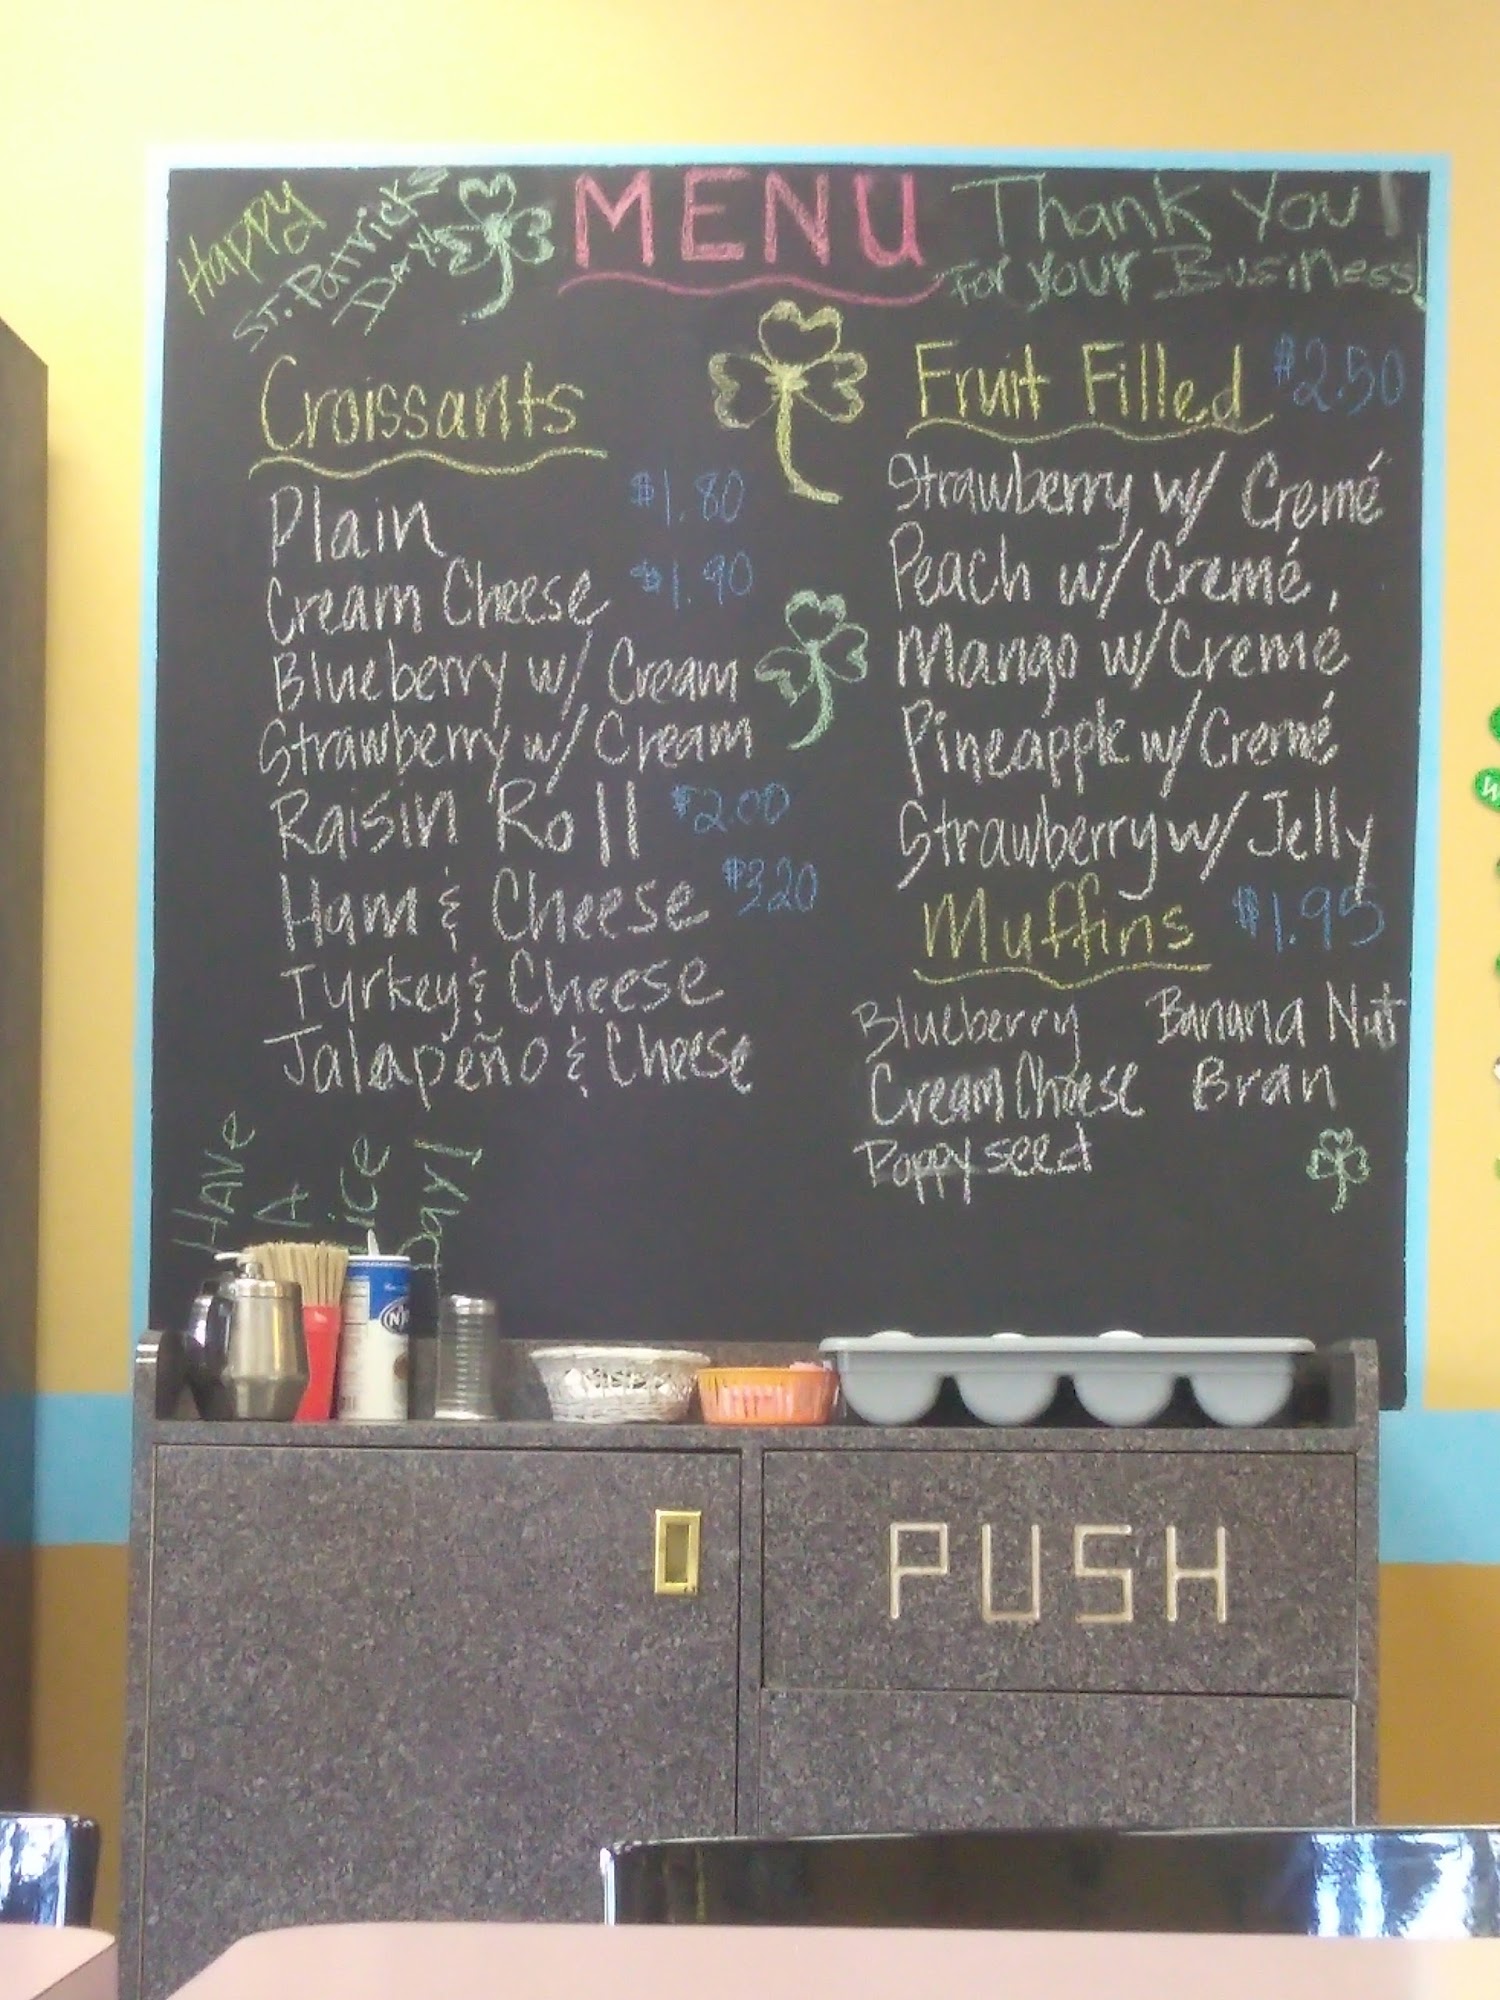 Happy
St. Patrick's
Day!
MENU
Thank You!
For Your Business!
Croissants
Plain $1.80
Cream Cheese $1.90
Blueberry w/ Cream
Strawberry w/ Cream
Raisin Roll $2.00
Ham & Cheese $3.20
Turkey & Cheese
Jalapeño & Cheese
Fruit Filled $2.50
Strawberry w/ Cremé
Peach w/ Cremé
Mango w/ Cremé
Pineapple w/ Cremé
Strawberry w/ Jelly
Muffins $1.95
Blueberry Banana Nut
Cream Cheese Bran
Poppy seed
Have
A
Nice
Day!
PUSH